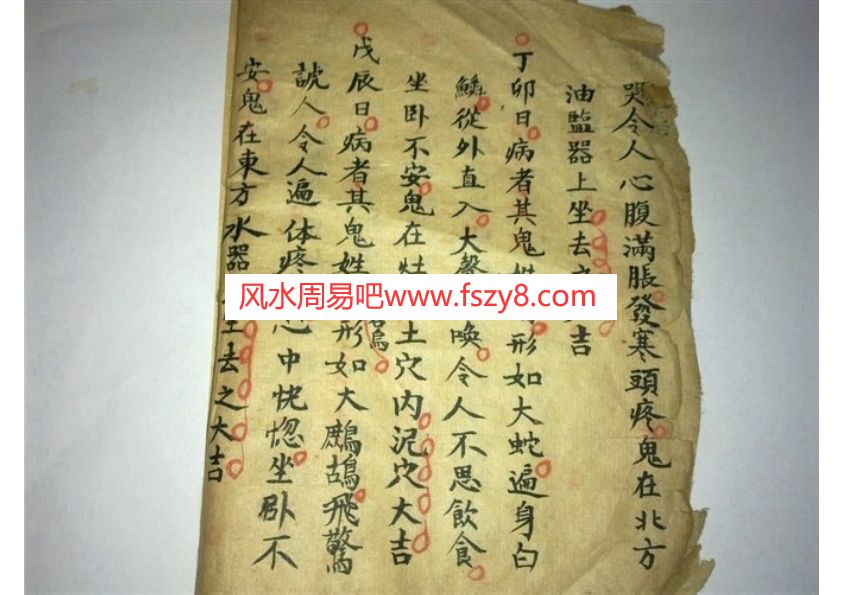 哭令人心腹滿脹發寒頭疼鬼在北方
油監器上坐去之大吉
丁卯日病者其鬼姓形如大蛇遍身白
鱗從外直入大聲喚令人不思飲食
坐卧不安鬼在灶土穴内泥穴大吉
戊辰日病者其鬼姓形如大鷓鴣飛驚
諕人令人遍体疼心中恍惚坐卧不
安鬼在東方水器坐去之大吉
风水周易吧www.fszy8.com